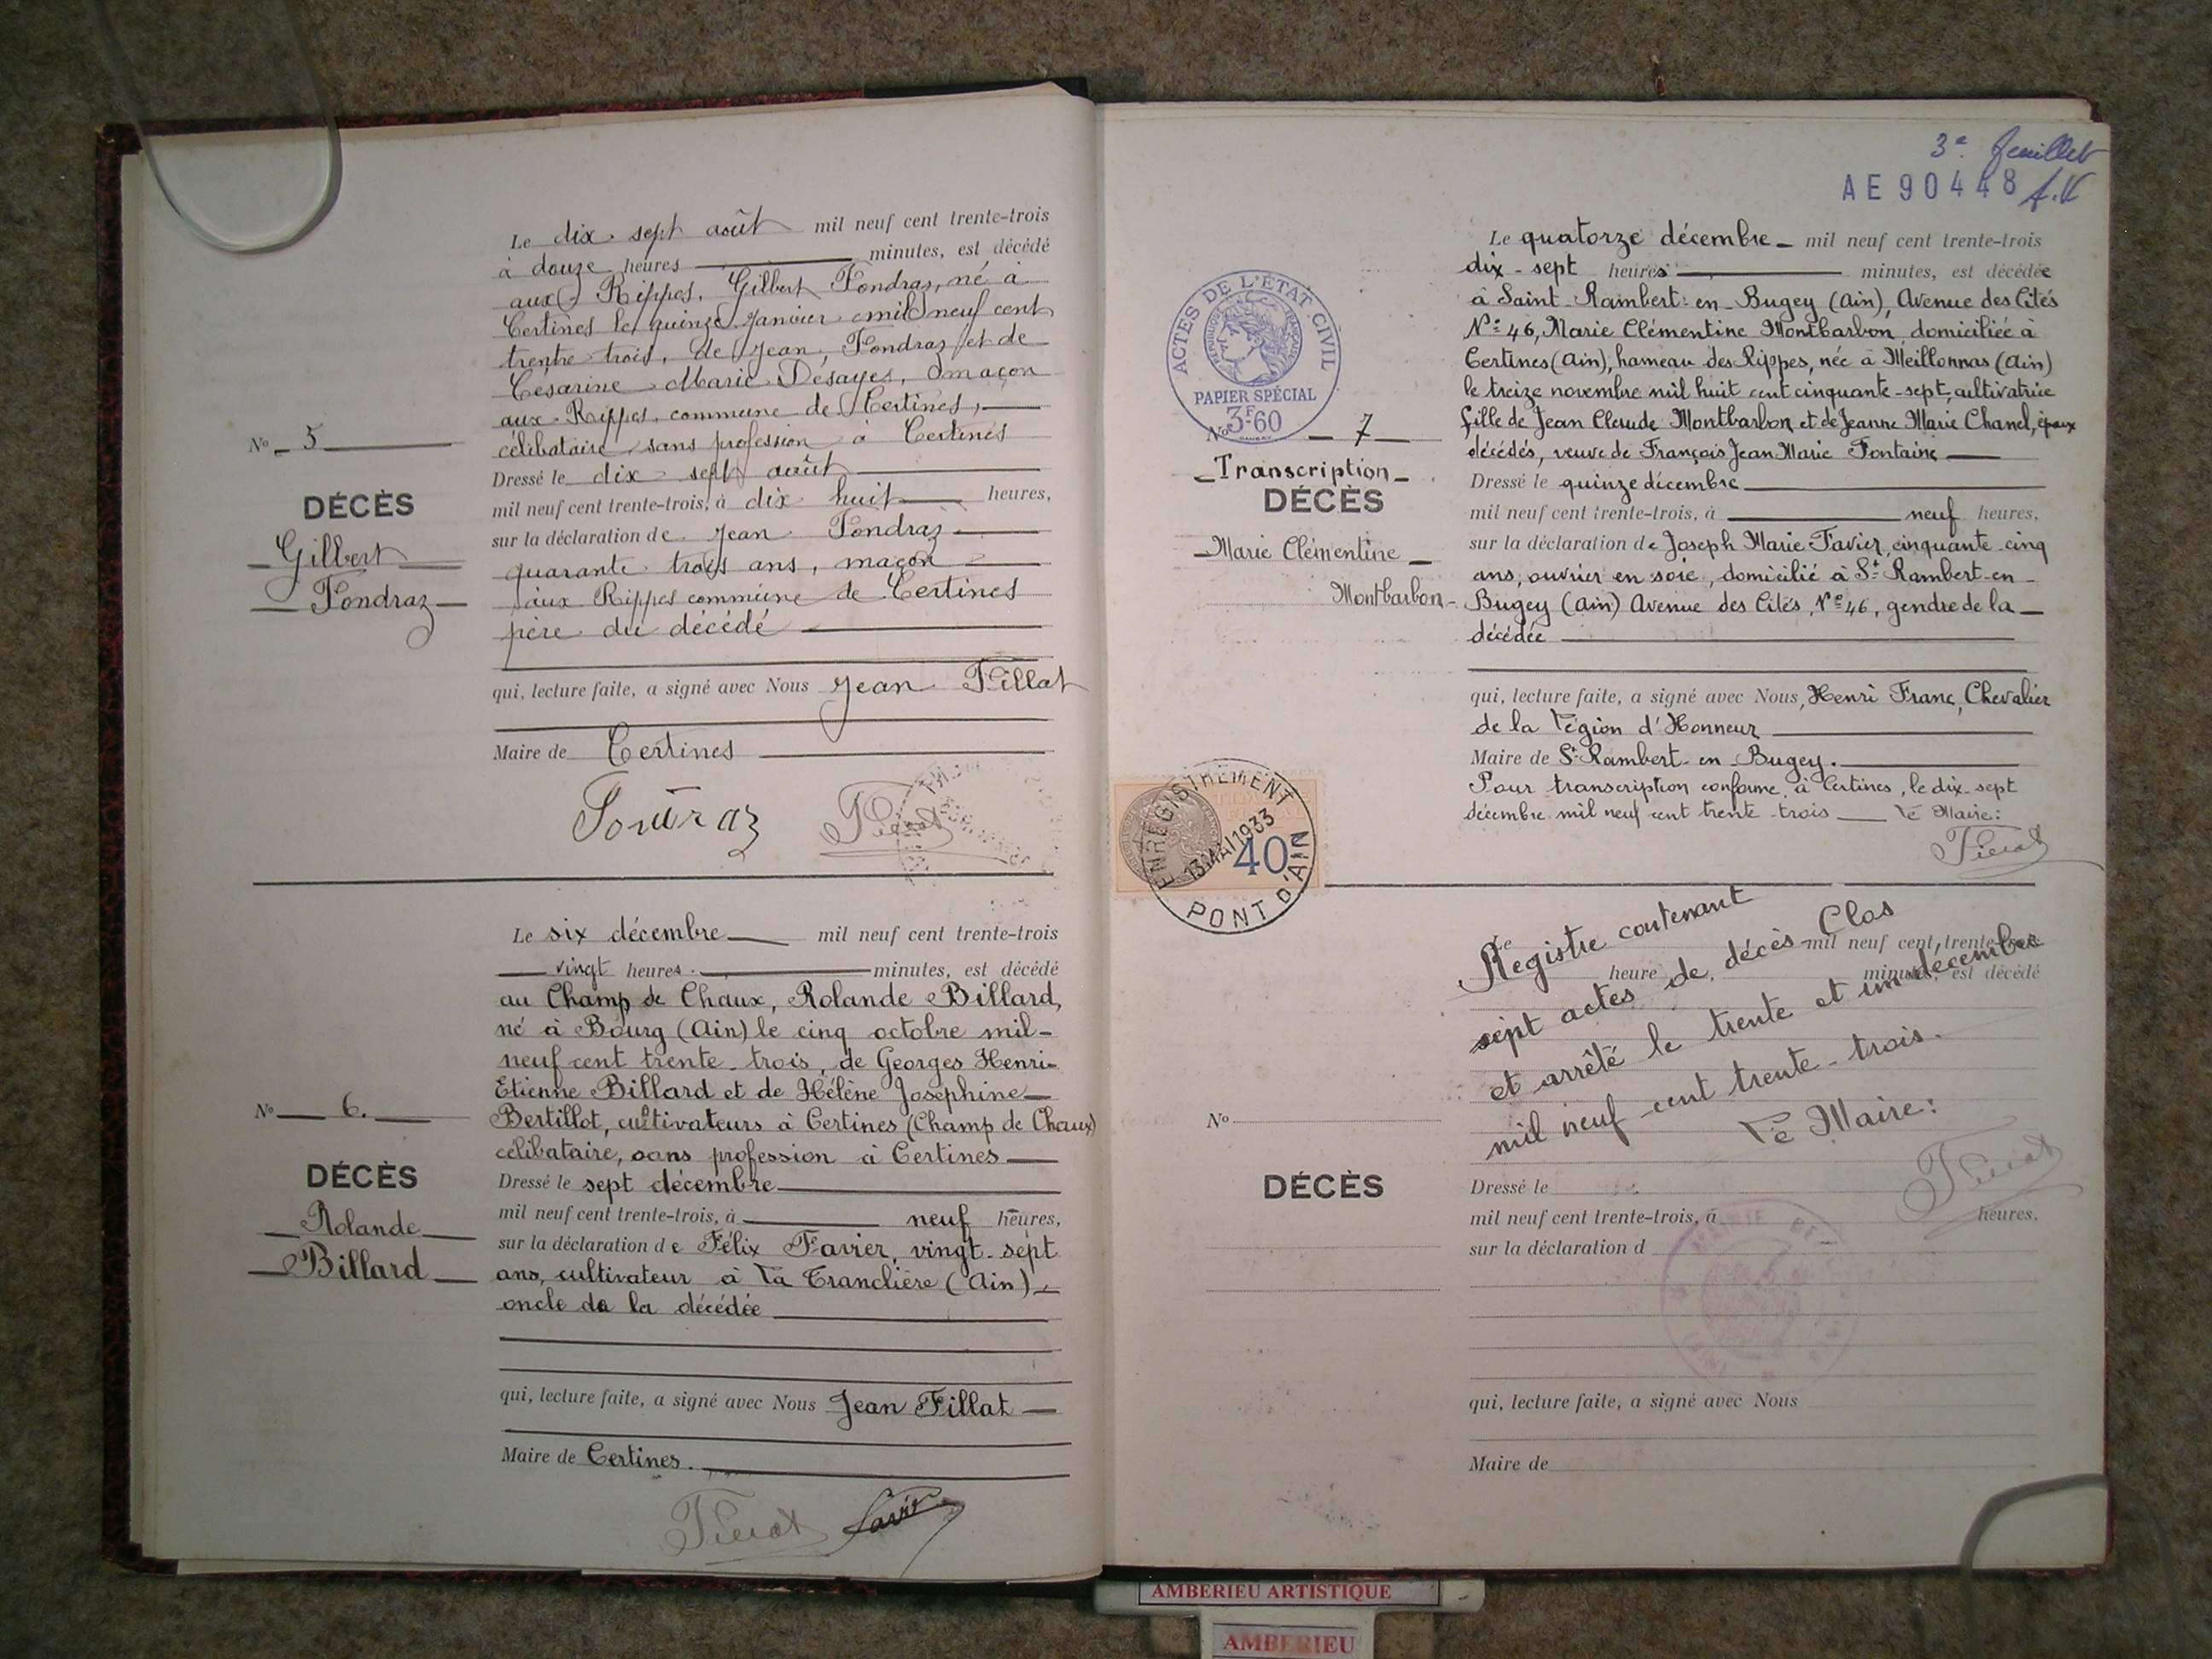 Le dix-sept août mil neuf cent trente-trois
à douze heures minutes, est décédé
aux Rippes, Gilbert Fondraz, né à
Certines le quinze Janvier mil neuf cent
trente trois, de Jean, Fondraz et de
Césarine Marie Désayes, maçon
aux Rippes, commune de Certines,
célibataire, sans profession à Certines
Dressé le dix-sept août
mil neuf cent trente-trois, à dix huit heures,
sur la déclaration de Jean Fondraz
quarante trois ans, maçon
aux Rippes commune de Certines
père du décédé
qui, lecture faite, a signé avec Nous Jean Fillat
Maire de Certines
Fondraz
No 5
DÉCÈS
Gilbert
Fondraz
Le six décembre mil neuf cent trente-trois
vingt heures minutes, est décédé
au Champ de Chaux, Rolande Billard,
né à Bourg (Ain) le cinq octobre mil-
neuf cent trente-trois, de Georges Henri-
Etienne Billard et de Hélène Joséphine
Bertillot, cultivateurs à Certines (Champ de Chaux)
célibataire, sans profession à Certines
Dressé le sept décembre
mil neuf cent trente-trois, à neuf heures,
sur la déclaration de Félix Favier, vingt-sept
ans, cultivateur à La Tranclière (Ain),
oncle de la décédée
qui, lecture faite, a signé avec Nous Jean Fillat
Maire de Certines.
No 6.
DÉCÈS
Rolande
Billard
3e feuillet
AE 90448
ACTES DE L'ÉTAT CIVIL
RÉPUBLIQUE FRANÇAISE
PAPIER SPÉCIAL
3F60
No 7
Transcription
DÉCÈS
Marie Clémentine
Montbarbon
Le quatorze décembre mil neuf cent trente-trois
dix-sept heures minutes, est décédée
à Saint-Rambert-en-Bugey (Ain), Avenue des Cités
No 46, Marie Clémentine Montbarbon, domiciliée à
Certines (Ain), hameau des Rippes, née à Meillonnas (Ain)
le treize novembre mil huit cent cinquante-sept, cultivatrice
fille de Jean Claude Montbarbon et de Jeanne Marie Chanel, époux
décédés, veuve de François Jean Marie Fontaine
Dressé le quinze décembre
mil neuf cent trente-trois, à neuf heures,
sur la déclaration de Joseph Marie Favier, cinquante-cinq
ans, ouvrier en soie, domicilié à St Rambert-en-
Bugey (Ain) Avenue des Cités, No 46, gendre de la
décédée
qui, lecture faite, a signé avec Nous, Henri Franc, Chevalier
de la Légion d'Honneur
Maire de St Rambert-en-Bugey.
Pour transcription conforme, à Certines, le dix-sept
décembre mil neuf cent trente-trois Le Maire:
ENREGISTREMENT
13 MAI 1933
40c
PONT D'AIN
Le mil neuf cent trente-trois
heure minutes, est décédé
Registre contenant
sept actes de décès Clos
et arrêté le trente et un décembre
mil neuf cent trente-trois.
Le Maire:
No
DÉCÈS
Dressé le
mil neuf cent trente-trois, à heures,
sur la déclaration d
qui, lecture faite, a signé avec Nous
Maire de
AMBERIEU ARTISTIQUE
AMBERIEU